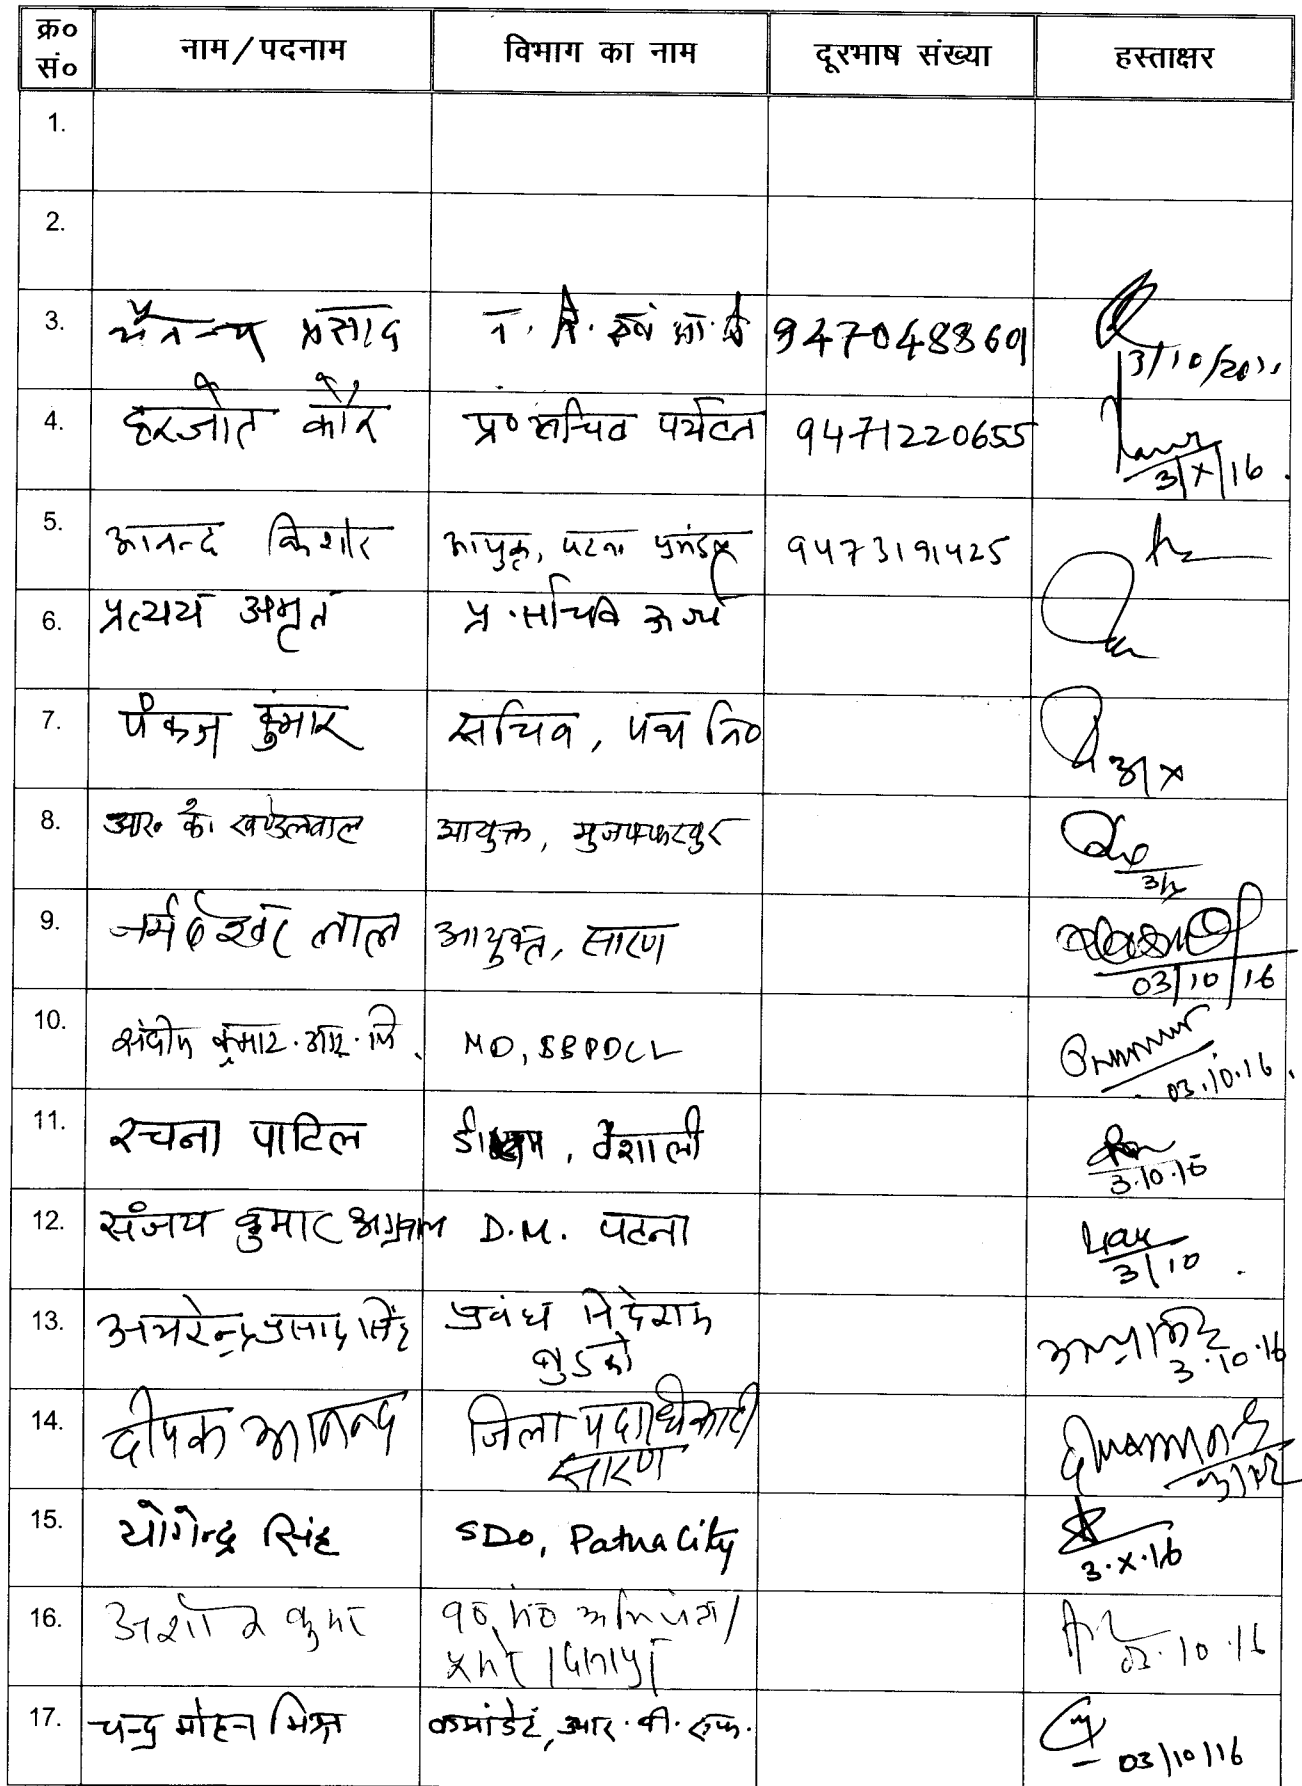 क्र० सं० नाम/पदनाम विभाग का नाम दूरभाष संख्या हस्ताक्षर
1.
2.
3. चैतन्य प्रसाद न. वि. एवं आ. 9470488601 3/10/20
4. हरजोत कौर प्र० सचिव पर्यटन 9471220655 3/X/16.
5. आनन्द किशोर आयुक्त, पटना प्रमंडल 9473191425
6. प्रत्यय अमृत प्र. सचिव ऊर्जा
7. पंकज कुमार सचिव, पथ नि० 3/X
8. आर. के. खण्डेलवाल आयुक्त, मुजफ्फरपुर
9. नर्मदेश्वर लाल आयुक्त, सारण 03/10/16
10. संदीप कुमार. आर. MD, SBPDCL 03.10.16.
11. रचना पाटिल वैशाली 3.10.16
12. संजय कुमार अग्रवाल D.M. पटना 3/10.
13. अमरेन्द्र प्रसाद सिंह प्रबंध निदेशक
बुडको 3.10.16
14. दीपक आनन्द जिला पदाधिकारी
सारण
15. योगेन्द्र सिंह SDO, Patna City 3.X.16
16. अशोक कुमार 03.10.16
17. चन्द्र मोहन मिश्र कमांडेंट, आर. पी. एफ. 03/10/16